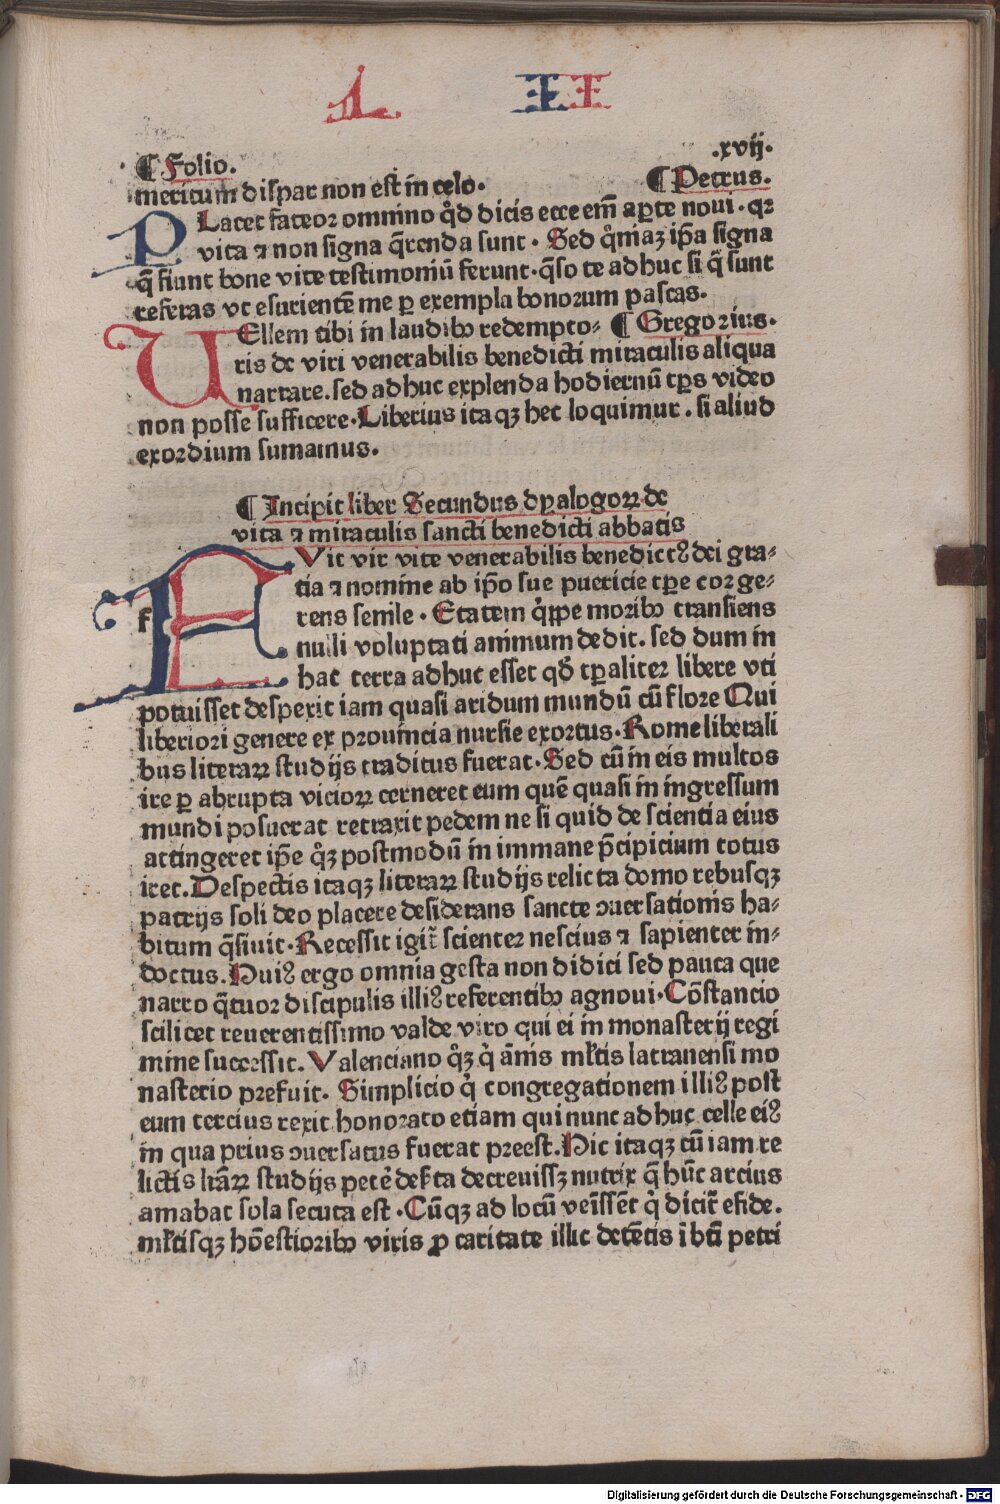 L II
¶ Folio. .xvij.
meritum dispar non est in celo. ¶ Petrus.
PLacet fateor omnino qd̓ dicis ecce em̄ aꝑte noui. qꝛ
vita ⁊ non signa q̄renda sunt. Sed qm̓aꝫ ip̄a signa
q̄ fiunt bone vite testimoniū ferunt. q̄so te adhuc si q̄ sunt
referas vt esurientē me ꝑ exempla bonorum pascas.
UEllem tibi in laudibꝰ redempto⸗ ¶ Gregorius.
ris de viri venerabilis benedicti miraculis aliqua
narrare. sed adhuc explenda hodiernū tp̄s video
non posse sufficere. Liberius itaqꝫ hec loquimur. si aliud
exordium sumamus.
¶ Incipit liber Secundus dyalogoꝝ de
vita ⁊ miraculis sancti benedicti abbatis
FVit vir vite venerabilis benedictꝰ dei gra⸗
tia ⁊ nomine ab ip̄o sue puericie tp̄e cor ge⸗
rens senile. Etatem q̓ppe moribꝰ transiens
nulli voluptati animum dedit. sed dum in
hac terra adhuc esset qd̓ tꝑaliter libere vti
potuisset despexit iam quasi aridum mundū cū flore Qui
liberiori genere ex prouincia nursie exortus. Rome liberali
bus literaꝝ studijs traditus fuerat. Sed cū in eis multos
ire ꝑ abrupta vicioꝝ cerneret eum quē quasi in ingressum
mundi posuerat retraxit pedem ne si quid de scientia eius
attingeret ip̄e qꝫ̓ postmodū in immane p̄cipicium totus
iret. Despectis itaqꝫ literaꝝ studijs relicta domo rebusqꝫ
patrijs soli deo placere desiderans sancte ꝯuersationis ha⸗
bitum q̄siuit. Recessit igit̄ scienter nescius ⁊ sapienter in⸗
doctus. Huiꝰ ergo omnia gesta non didici sed pauca que
narro q̄tuor discipulis illiꝰ referentibꝰ agnoui. Cōstancio
scilicet reuerentissimo valde viro qui ei in monasterij regi
mine successit. Valenciano qꝫ̓ q̓ ānis ml̓tis latranensi mo
nasterio prefuit. Simplicio q̓ congregationem illiꝰ post
eum tercius rexit honorato etiam qui nunc adhuc celle eiꝰ
in qua prius ꝯuersatus fuerat preest. Hic itaqꝫ cū iam re
lictis lr̄aꝝ studijs petē̓ deẜta decreuissꝫ nutrix q̄ hūc arcius
amabat sola secuta est. Cūqꝫ ad locū venīssēt q̓ dicit̄ efide.
ml̓tisqꝫ hōestioribꝰ viris ꝓ caritate illic detētis ī btī petri